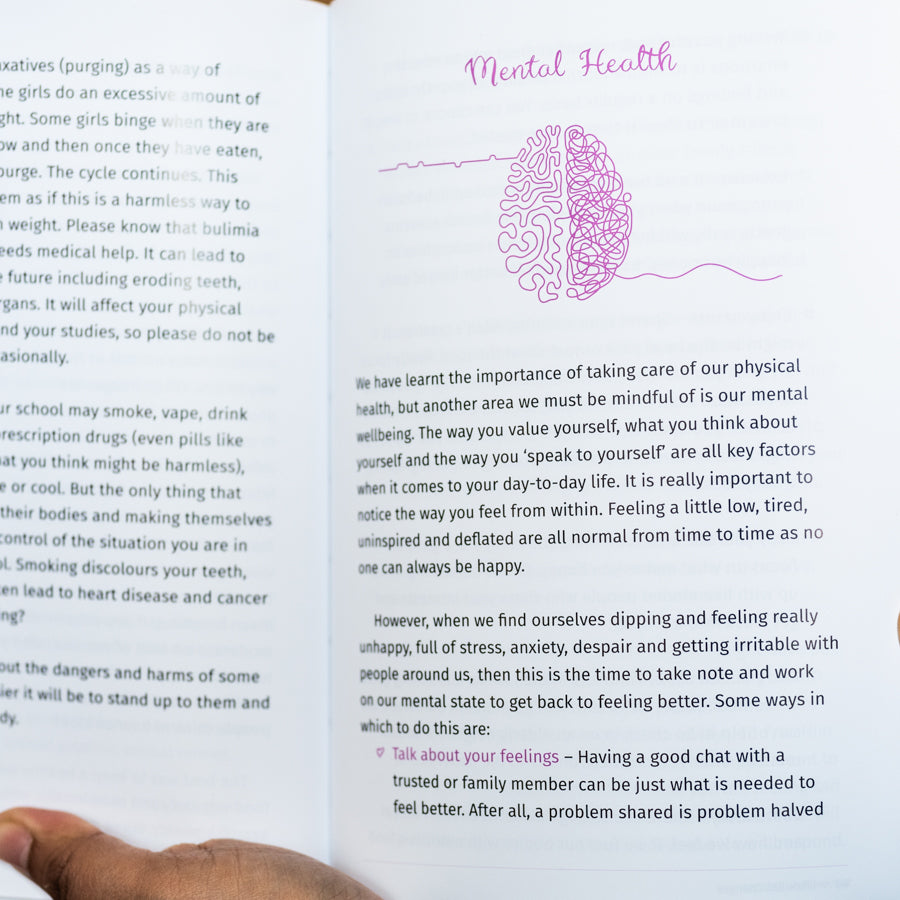 axatives (purging) as a way of
he girls do an excessive amount of
ght. Some girls binge when they are
ow and then once they have eaten,
purge. The cycle continues. This
em as if this is a harmless way to
n weight. Please know that bulimia
eeds medical help. It can lead to
e future including eroding teeth,
rgans. It will affect your physical
nd your studies, so please do not be
asionally.
ur school may smoke, vape, drink
rescription drugs (even pills like
at you think might be harmless),
e or cool. But the only thing that
their bodies and making themselves
control of the situation you are in
ol. Smoking discolours your teeth,
en lead to heart disease and cancer
ng?
out the dangers and harms of some
ier it will be to stand up to them and
dy.
Mental Health
We have learnt the importance of taking care of our physical
health, but another area we must be mindful of is our mental
wellbeing. The way you value yourself, what you think about
yourself and the way you ‘speak to yourself’ are all key factors
when it comes to your day-to-day life. It is really important to
notice the way you feel from within. Feeling a little low, tired,
uninspired and deflated are all normal from time to time as no
one can always be happy.
However, when we find ourselves dipping and feeling really
unhappy, full of stress, anxiety, despair and getting irritable with
people around us, then this is the time to take note and work
on our mental state to get back to feeling better. Some ways in
which to do this are:
Talk about your feelings – Having a good chat with a
trusted or family member can be just what is needed to
feel better. After all, a problem shared is problem halved